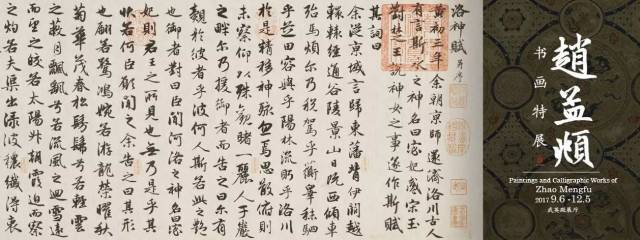 洛神賦 并序
黃初三年余朝京師還濟洛川古人
有言斯水之神名曰宓妃感宋玉
對楚王說神女之事遂作斯賦
其詞曰
余從京域言歸東藩背伊闕越
轘轅經通谷陵景山日既西傾車
殆馬煩尔乃稅駕乎蘅皋秣駟
乎芝田容與乎陽林流眄乎洛川
於是精移神駭忽焉思散俯則
未察仰以殊觀睹一麗人于巖
之畔尔乃援御者而告之曰尔有
覿於彼者乎彼何人斯若此之艷
也御者對曰臣聞河洛之神名曰宓
妃則君王之所見也無乃是乎其
狀若何臣願聞之余告之曰其形
也翩若驚鴻婉若游龍榮曜秋
菊華茂春松髣髴兮若輕雲
之蔽月飄飄兮若流風之迴雪遠
而望之皎若太陽升朝霞迫而察
之灼若夫渠出淥波穠纖得衷
趙孟頫
书画特展
Paintings and Calligraphic Works of
Zhao Mengfu
2017 9.6 -12.5
武英殿展厅